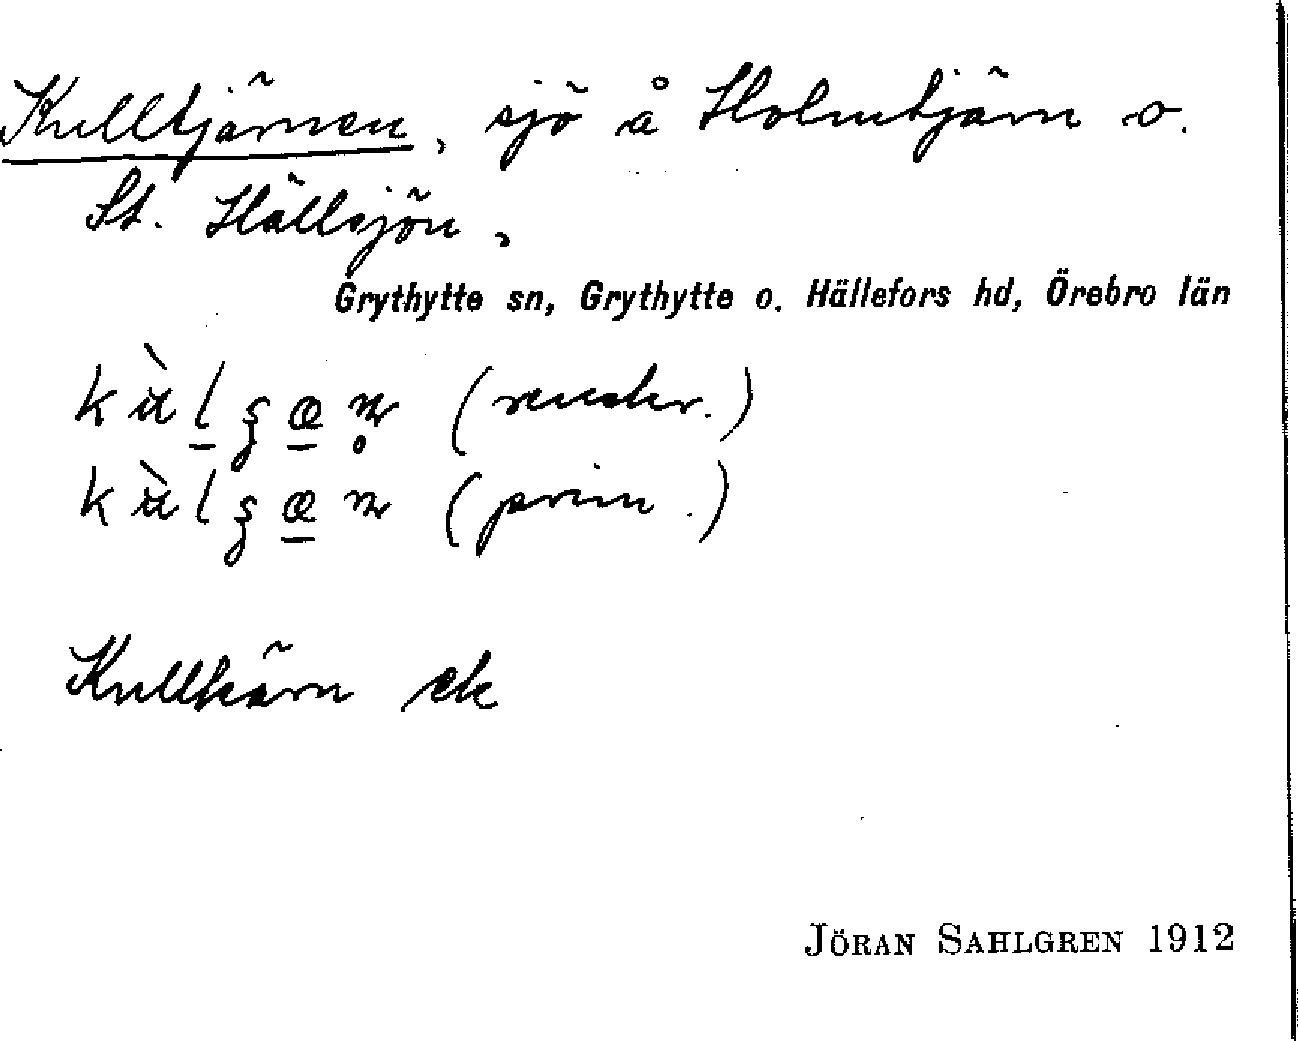 Kulltjärnen, sjö å Holmtjärn o.
St. Hällsjön,
Grythytte sn, Grythytte o. Hällefors hd, Örebro län
(prim.)
Kullkärn ek
JÖRAN SAHLGREN 1912